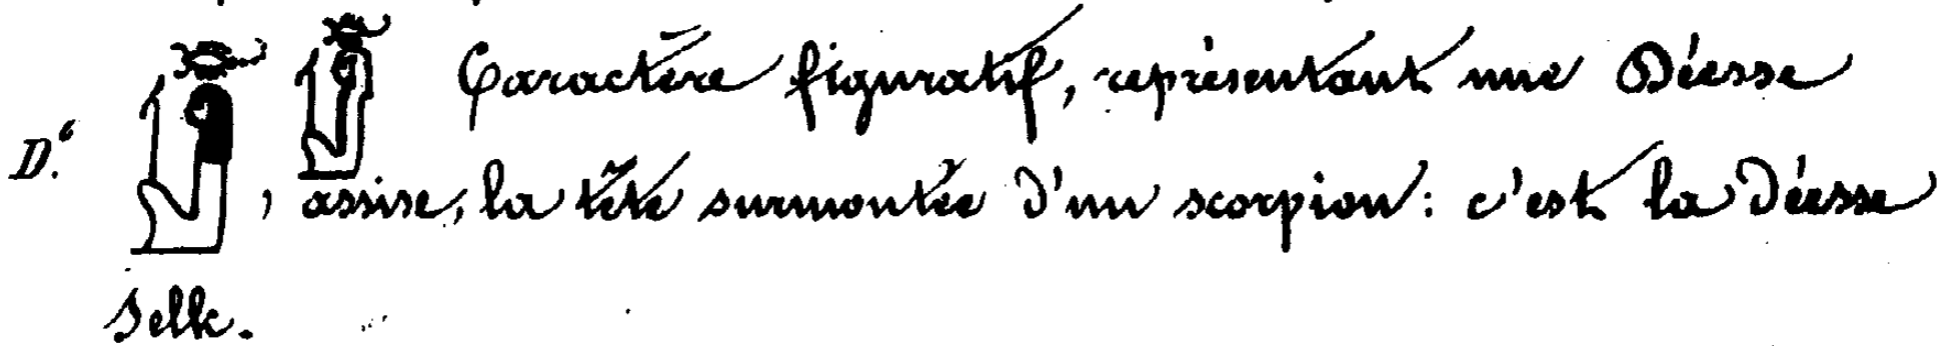 Caractère figuratif, représentant une Déesse
D.⁶ , assise, la tête surmontée d'un scorpion: c'est la Déesse
Selk.